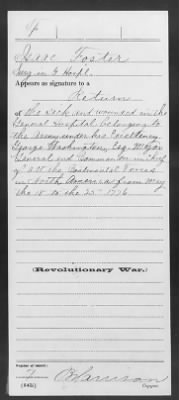 F
Isaac Foster
Surg in G Hospl.
Appears as signature to a
Return
of the sick and wounded in the
General Hospital belonging to
the Army under his Excellency
George Washington, Esq. Major
General and Commander in chief
of all the Continental Forces
in North America from May
the 18" to the 25" 1776
(Revolutionary War.)
Number of record:
7
(545)
Copyist.